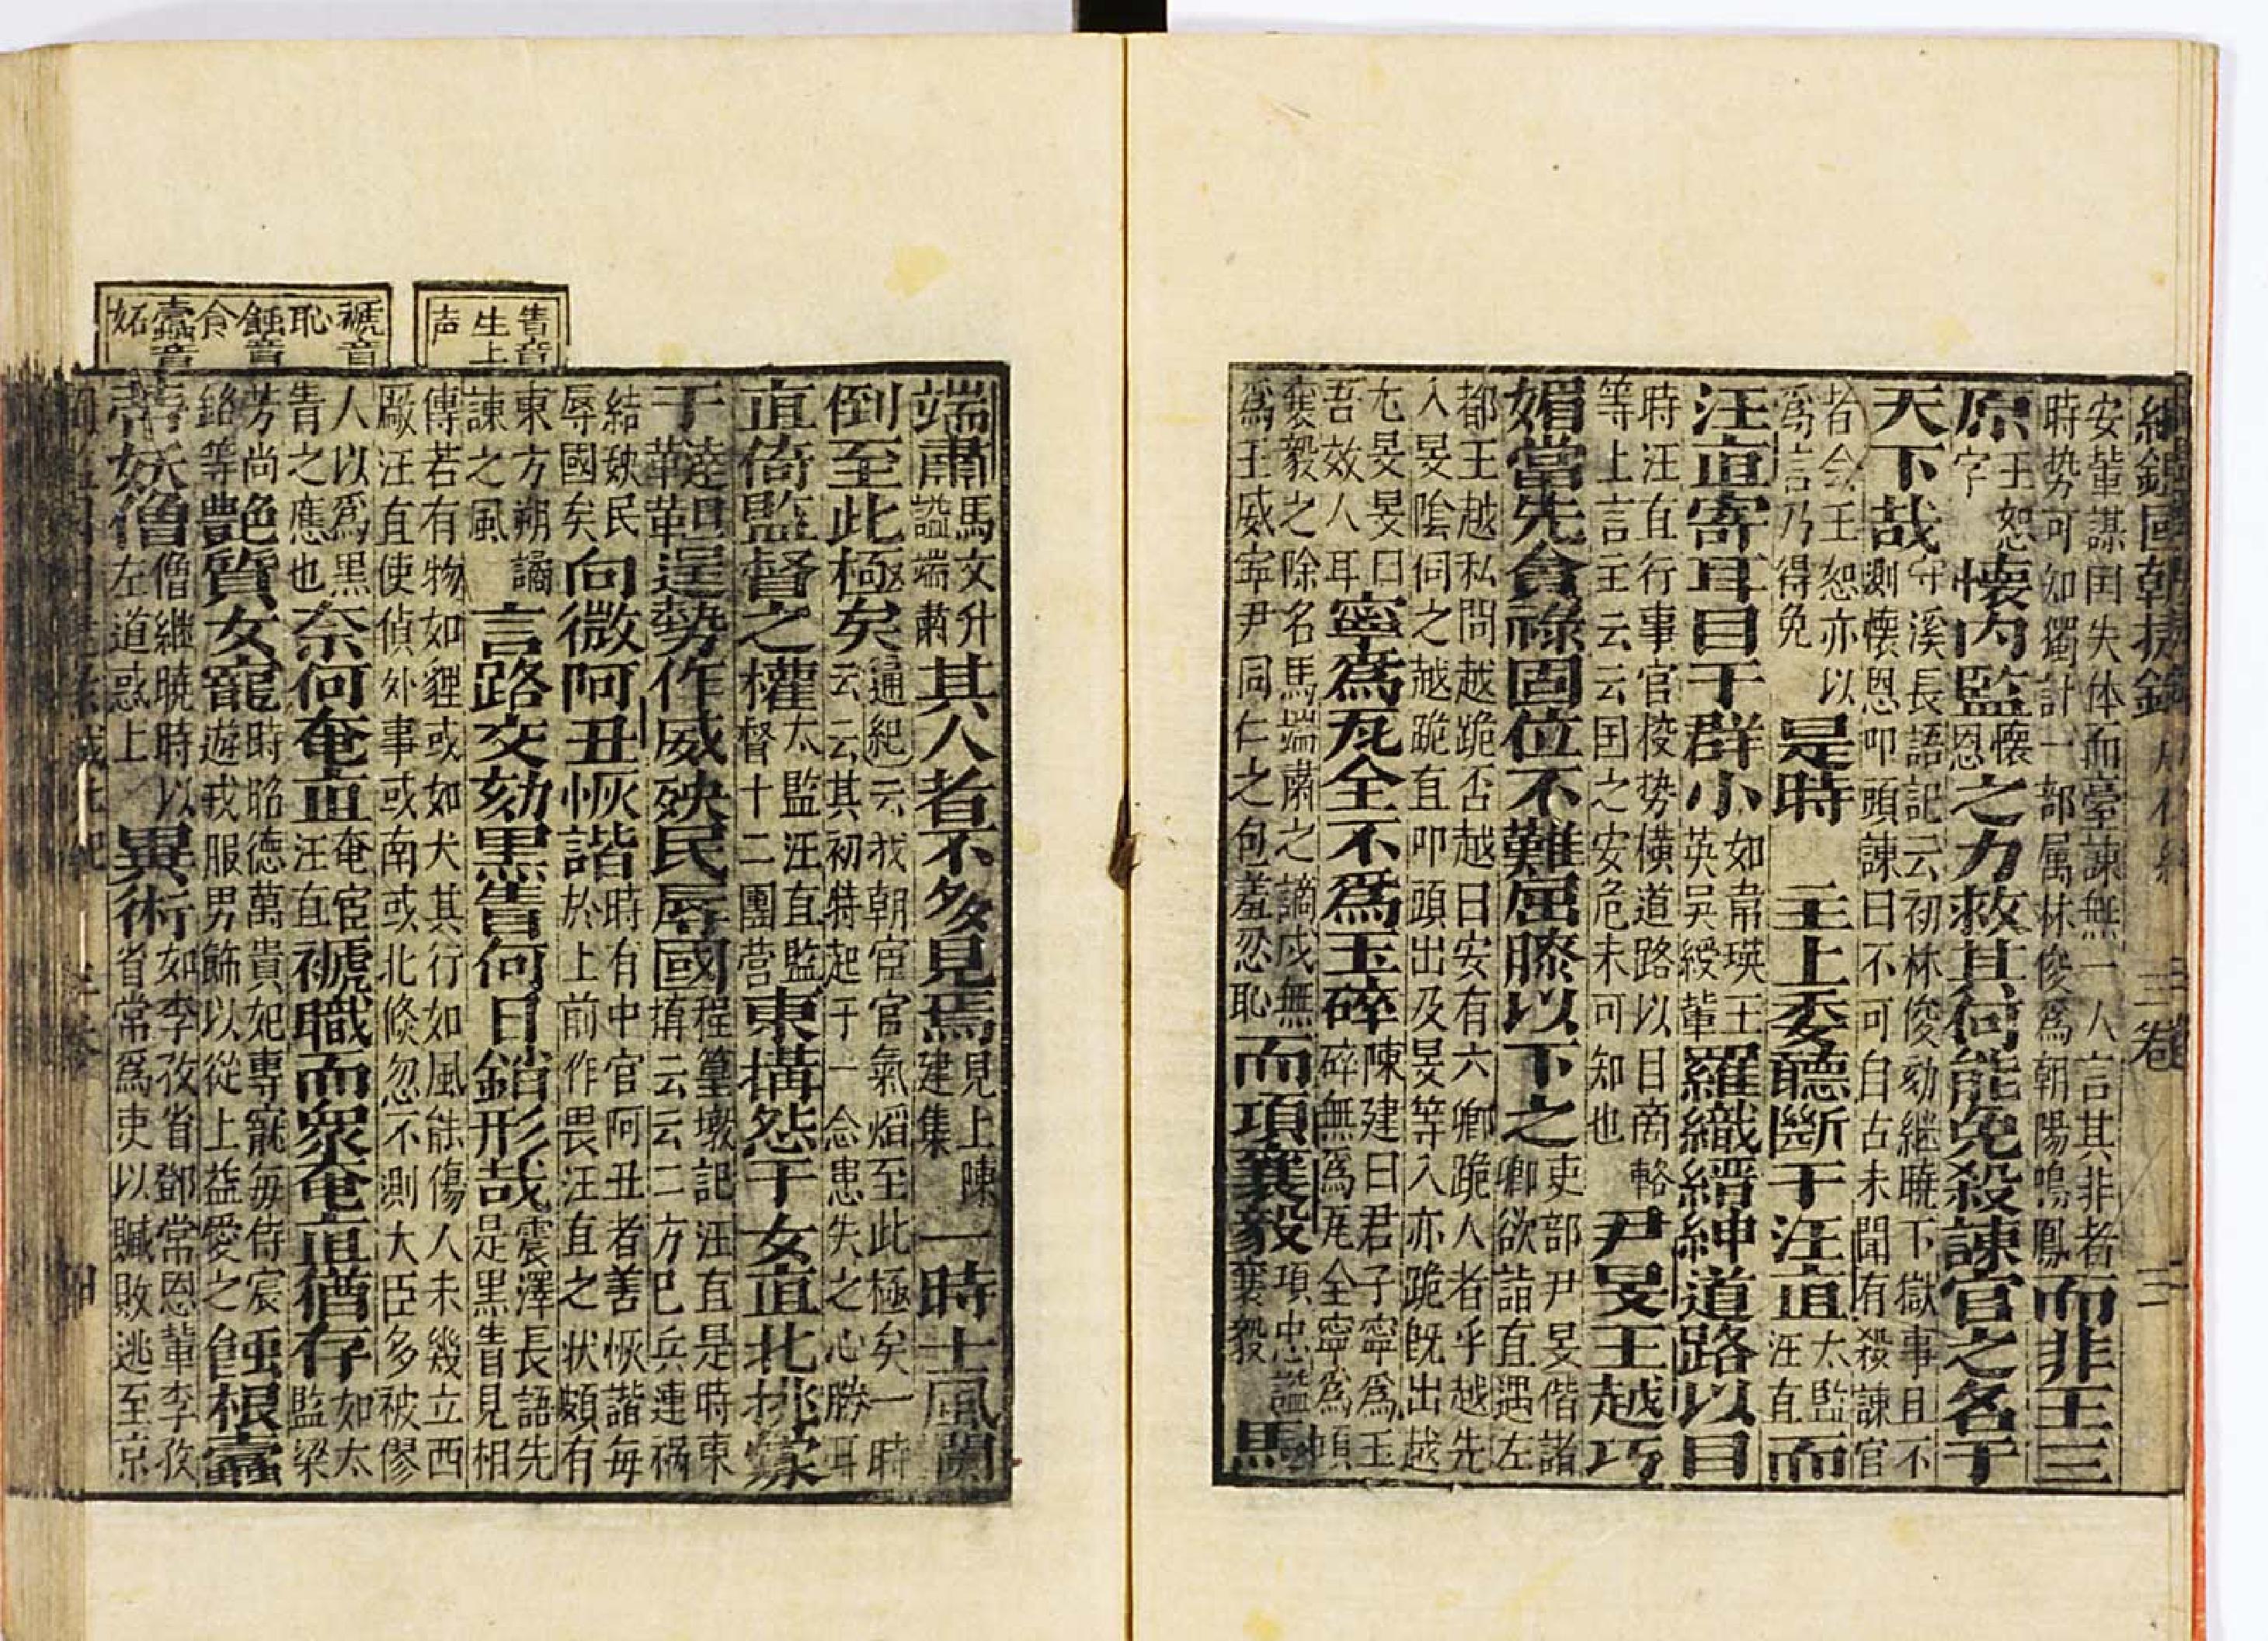 安輩謀囯失体而臺諫無一人言其非者
時势可如獨計一部属林俊爲朝陽鳴鳳
而非王三
原
王恕
字
懷內監
懷
恩
之力救其何能免殺諫官之名于
天下哉
守溪長語記云初林俊劾継暁下獄事且不
測懷恩叩頭諫曰不可自古未聞有殺諫官
者今王恕亦以
爲言乃得免
是時 主上委聽斷于汪直
太監
汪直
而
汪直寄耳目于群小
如韋瑛王
英吳綬輩
羅織縉紳道路以目
時汪直行事官校势橫道路以目商輅
等上言主云云囯之安危未可知也
尹旻王越巧
媚當先貪祿固位不難屈膝以下之
吏部尹旻偕諸
卿欲詣直遇左
都王越私問越跪否越曰安有六卿跪人者乎越先
入旻陰伺之越跪直叩頭出及旻等入亦跪既出越
尤旻旻曰
吾效人耳
寧爲瓦全不爲玉碎
陳建曰君子寧爲玉
碎無爲瓦全寧爲項
襄毅之除名馬端肅之謫戍無
爲王威寧尹同仁之包羞忍恥
而項襄毅
項忠謚
襄毅
馬
眚音
生上
声
褫音
恥
蝕音
食
蠹音
妬
端肅
馬文升
謚端肅
其人者不多見焉
見上陳
建集
一時士風闒
倒至此極矣
通紀云我朝宦官氣焰至此極矣一時
云云其初特起于一念患失之心勝耳
直倚監督之權
太監汪直監
督十二團营
東搆怨于女直北挑釁
于
逞勢作威殃民辱國
程篁墩記汪直是時東
云云二方已兵連禍
結殃民
辱國矣
向微阿丑恢諧
時有中官阿丑者善恢諧每
於上前作畏汪直之状頗有
東方朔譎
諫之風
言路交劾黑眚何日銷形哉
震澤長語先
是黑眚見相
傳若有物如貍或如犬其行如風能傷人未幾立西
厰汪直使偵外事或南或北倐忽不測大臣多被僇
人以爲黑
眚之應也
奈何奄直
奄宦
汪直
褫職而衆奄直猶存
如太
監梁
芳尚
銘等
艷質女寵
時昭德萬貴妃專寵每侍宸
遊戎服男飾以從上益愛之
蝕根蠹
帝妖僧
僧継暁時以
左道惑上
異術
如李孜省鄧常恩輩李孜
省常爲吏以贓敗逃至京